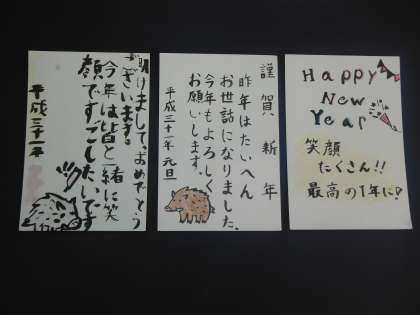 明けまして、おめでとう
ございます。
今年は皆と一緒に笑
顔ですごしたいです
平成三十一年
謹賀新年
昨年はたいへん
お世話になりました。
今年もよろしく
お願いします。
平成三十一年 元旦
Happy
New
Year
笑顔
たくさん!!
最高の1年に♪